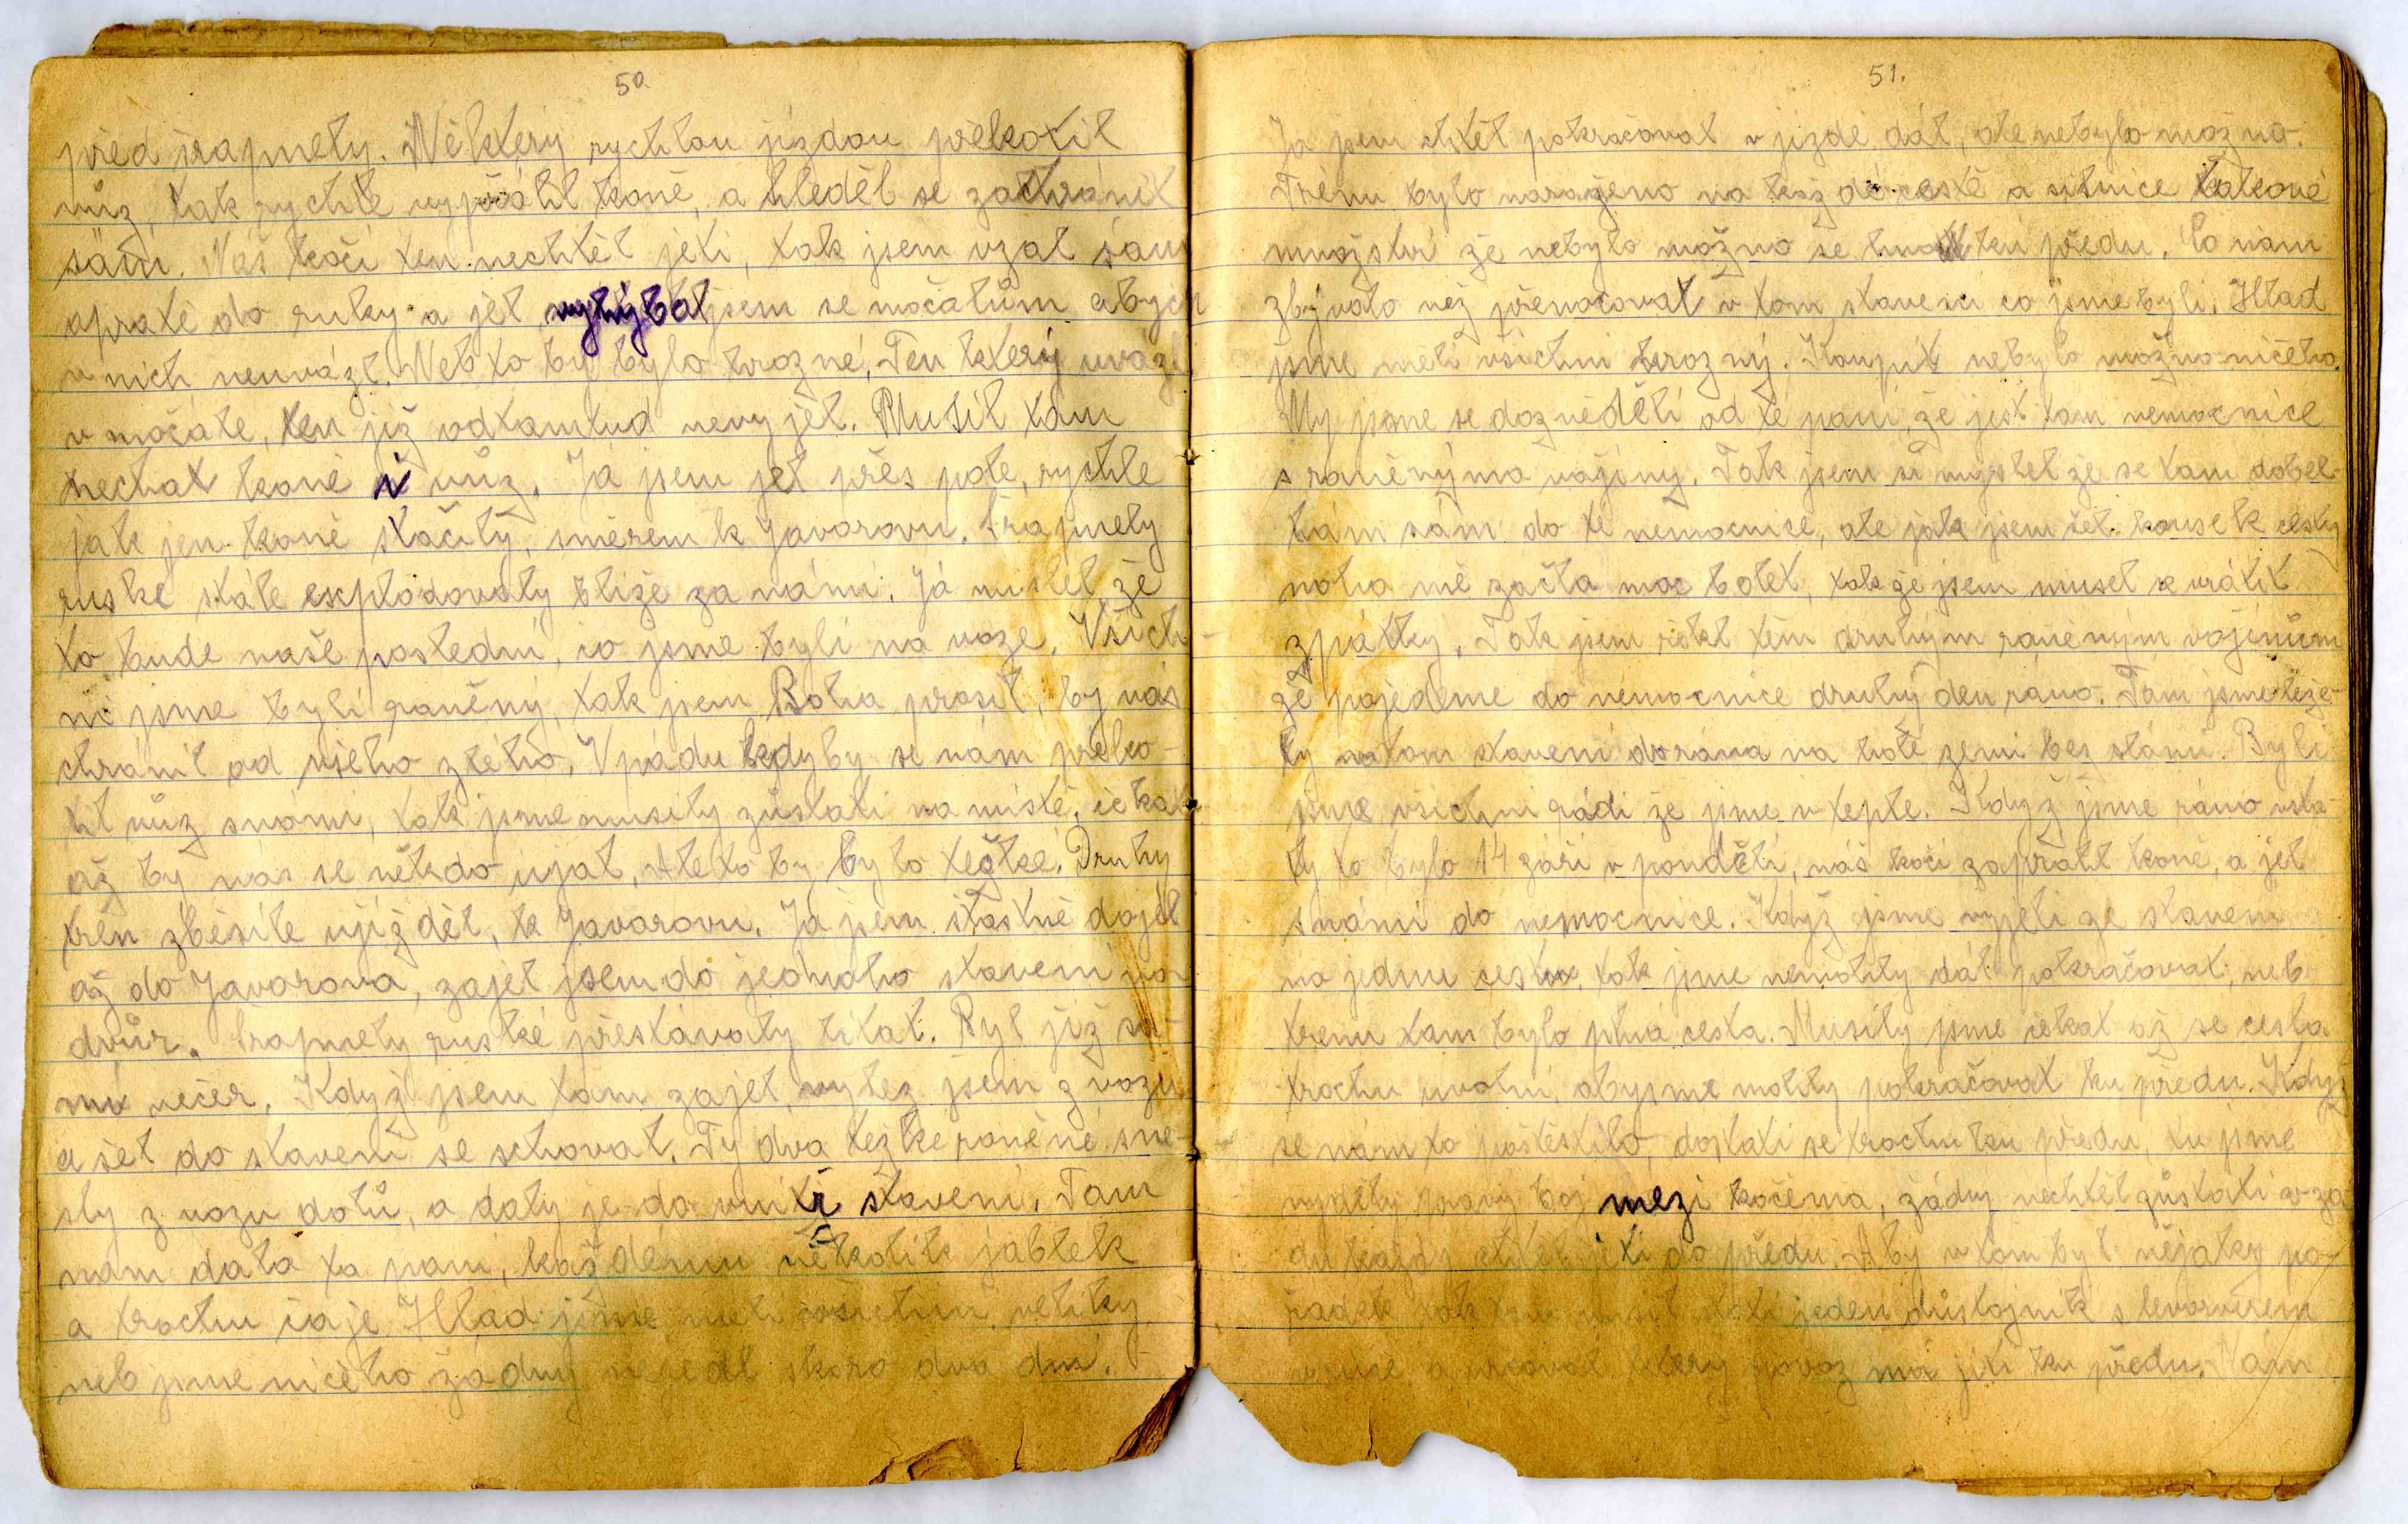 50.
před šrapnely. Některý rychlou jízdou překotil
vůz, tak rychle vypřáhl koně, a hleděl se zachránit
sám. Náš kočí ten nechtěl jeti, tak jsem vzal sám
opratě do ruky a jel, vyhýbal jsem se močálům abych
v nich neuvázl. Neb to by bylo hrozné, Ten který uvázl
v močále, ten již odtamtud nevyjel. Musil tam
nechat koně i vůz. Já jsem jel přes pole, rychle
jak jen koně stačily, směrem k Javorovu. Šrapnely
ruské stále explodovaly blíže za námi. Já mislel, že
to bude naše poslední, co jsme byli na voze. Všich-
ni jsme byli raněný, tak jsem Boha prosil, by nás
chránil od všeho zlého, V pádu kdyby se nám překo-
til vůz snámi, tak jsme musily zůstati na místě, čekat
až by nás se někdo ujal, Ale to by bylo težké. Druhy
trén zběsile ujížděl, k Javorovu. Ja jsem šťastně dojel
až do Javorova, zajel jsem do jednoho stavení na
dvůr. Šrapnely ruské přestávaly lítat. Byl již sa-
mí večer. Když jsem tam zajel, vylez jsem z vozu
a šel do stavení se schovat. Ty dva težke raněné sne-
sly z vozu dolů, a daly je do vnitř stavení. Tam
nám dala ta pani, každému několik jablek
a trochu čaje Hlad jsme meli všichni veliky
neb jsme ničeho žádny nejedl skoro dva dni.
51.
Ja jsem chtěl pokračovat v jízdě dál, ale nebylo možno.
Trénu bylo naraženo na každé cestě a silnice takové
množství že nebylo možno se hnout ku předu. Co nám
zbývalo než přenocovat v tom stavení co jsme byli. Hlad
jsme měli všichni hrozný. Koupit nebylo možno ničeho.
My jsme se dozvěděli od té paní, že jest tam nemocnice
s raněnýma vojíny. Tak jsem si myslel že se tam dobel-
hám sám do té nemocnice, ale jak jsem šel kousek cesty
noha mě začla moc bolet, tak že jsem musel se vrátit
zpátky. Tak jsem řekl těm druhým raněným vojínům
že pojedeme do nemocnice druhý den ráno. Tam jsme leže-
ly vtom stavení doráна na holé zemi bez slámi. Byli
jsme všichni rádi že jsme v teple. Když jsme ráno vsta-
ly to bylo 14 záři v pondělí, náš kočí zapřahl koně, a jel
snámi do nemocnice. Když jsme vyjeli ze stavení
na jednu cestu, tak jsme nemohly dál pokračovat, neb
trenu tam bylo plná cesta. Musily jsme čekat až se cesta
trochu uvolní, abysme mohly pokračovat ku předu. Když
se nám to poštěstilo, dostati se trochu ku předu, tu jsme
vyděly pravý boj mezi kočěma, žádny nechtěl zůstati v za-
du každý chtěl jeti do předu. Aby v tom byl nějaky po-
řadek tak tam musil stati jeden důstojnik s levorverem
v ruce a urcoval ktery povoz má jíti ku předu. Nám